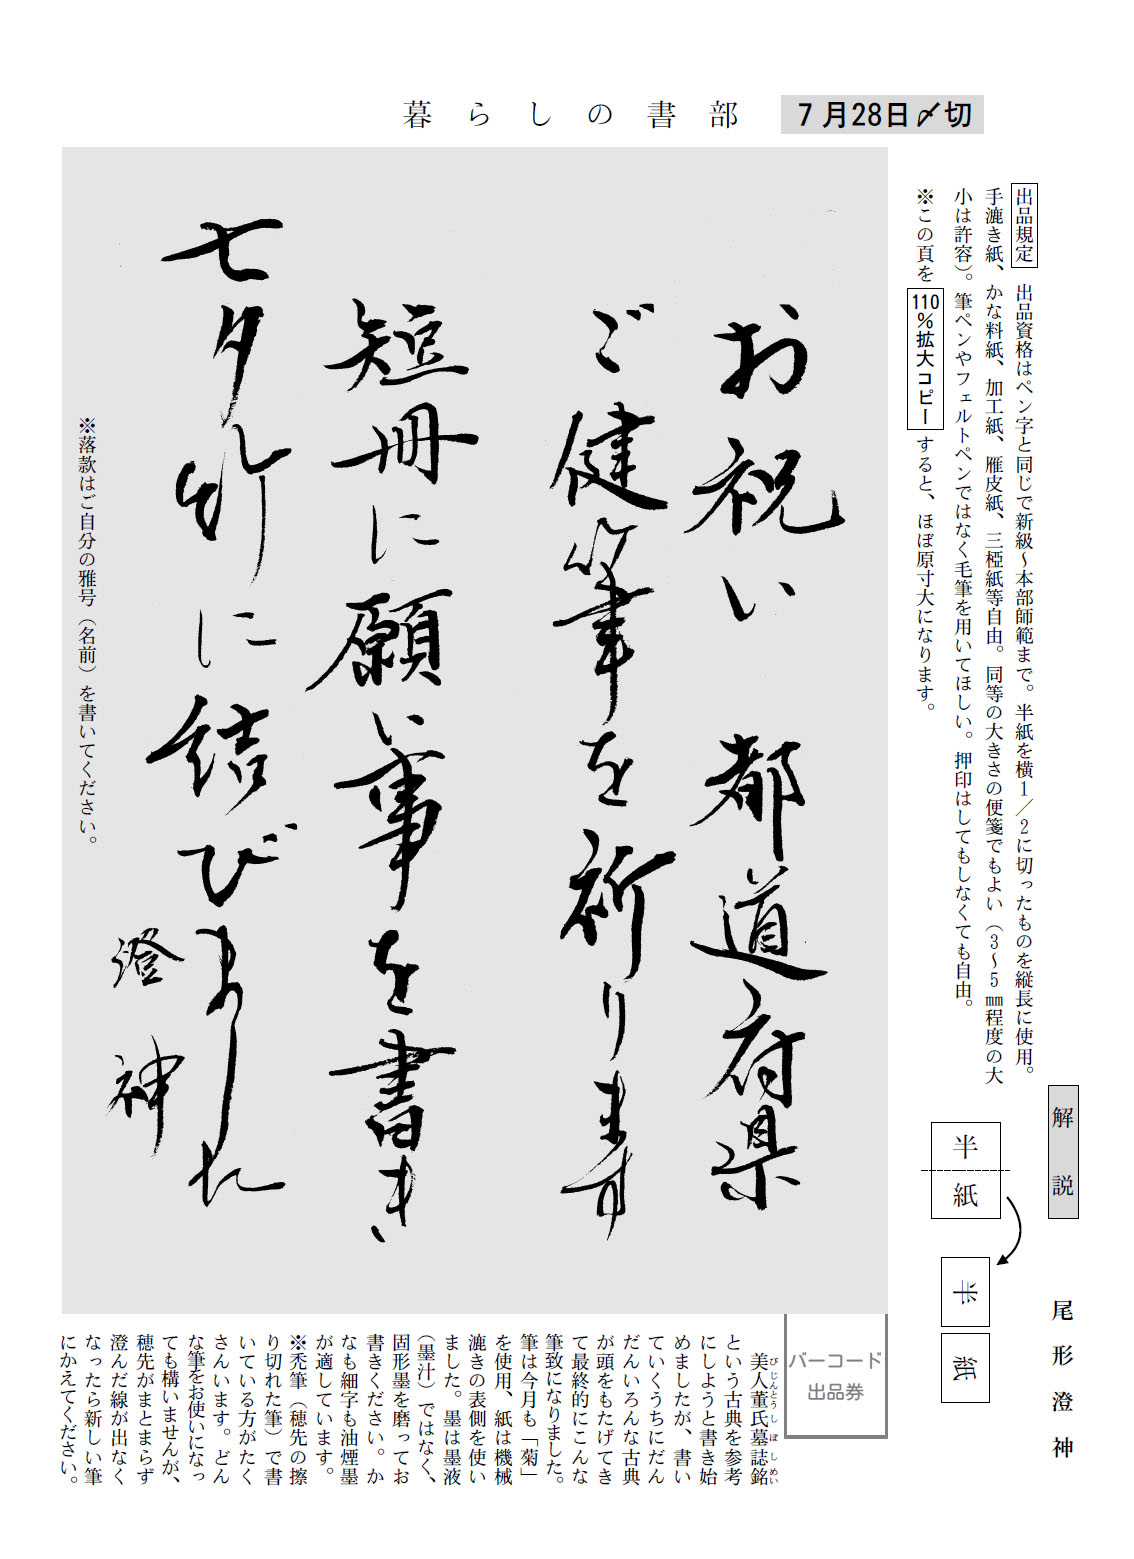 暮らしの書部
7月28日〆切
出品規定 出品資格はペン字と同じで新級～本部師範まで。半紙を横1／2に切ったものを縦長に使用。
手漉き紙、かな料紙、加工紙、雁皮紙、三椏紙等自由。同等の大きさの便箋でもよい（3～5㎜程度の大
小は許容）。筆ペンやフェルトペンではなく毛筆を用いてほしい。押印はしてもしなくても自由。
※この頁を110％拡大コピーすると、ほぼ原寸大になります。
お祝い 都道府県
ご健筆を祈ります
短冊に願い事を書き
七夕竹に結びました
澄神
※落款はご自分の雅号（名前）を書いてください。
半紙
半紙
解説
尾形澄神
バーコード
出品券
美人董氏墓誌銘
びじんとうしぼしめい
という古典を参考
にしようと書き始
めましたが、書い
ていくうちにだん
だんいろんな古典
が頭をもたげてき
て最終的にこんな
筆致になりました。
筆は今月も「菊」
を使用、紙は機械
漉きの表側を使い
ました。墨は墨液
（墨汁）ではなく、
固形墨を磨ってお
書きください。か
なも細字も油煙墨
が適しています。
※禿筆（穂先の擦
り切れた筆）で書
いている方がたく
さんいます。どん
な筆をお使いになっ
ても構いませんが、
穂先がまとまらず
澄んだ線が出なく
なったら新しい筆
にかえてください。